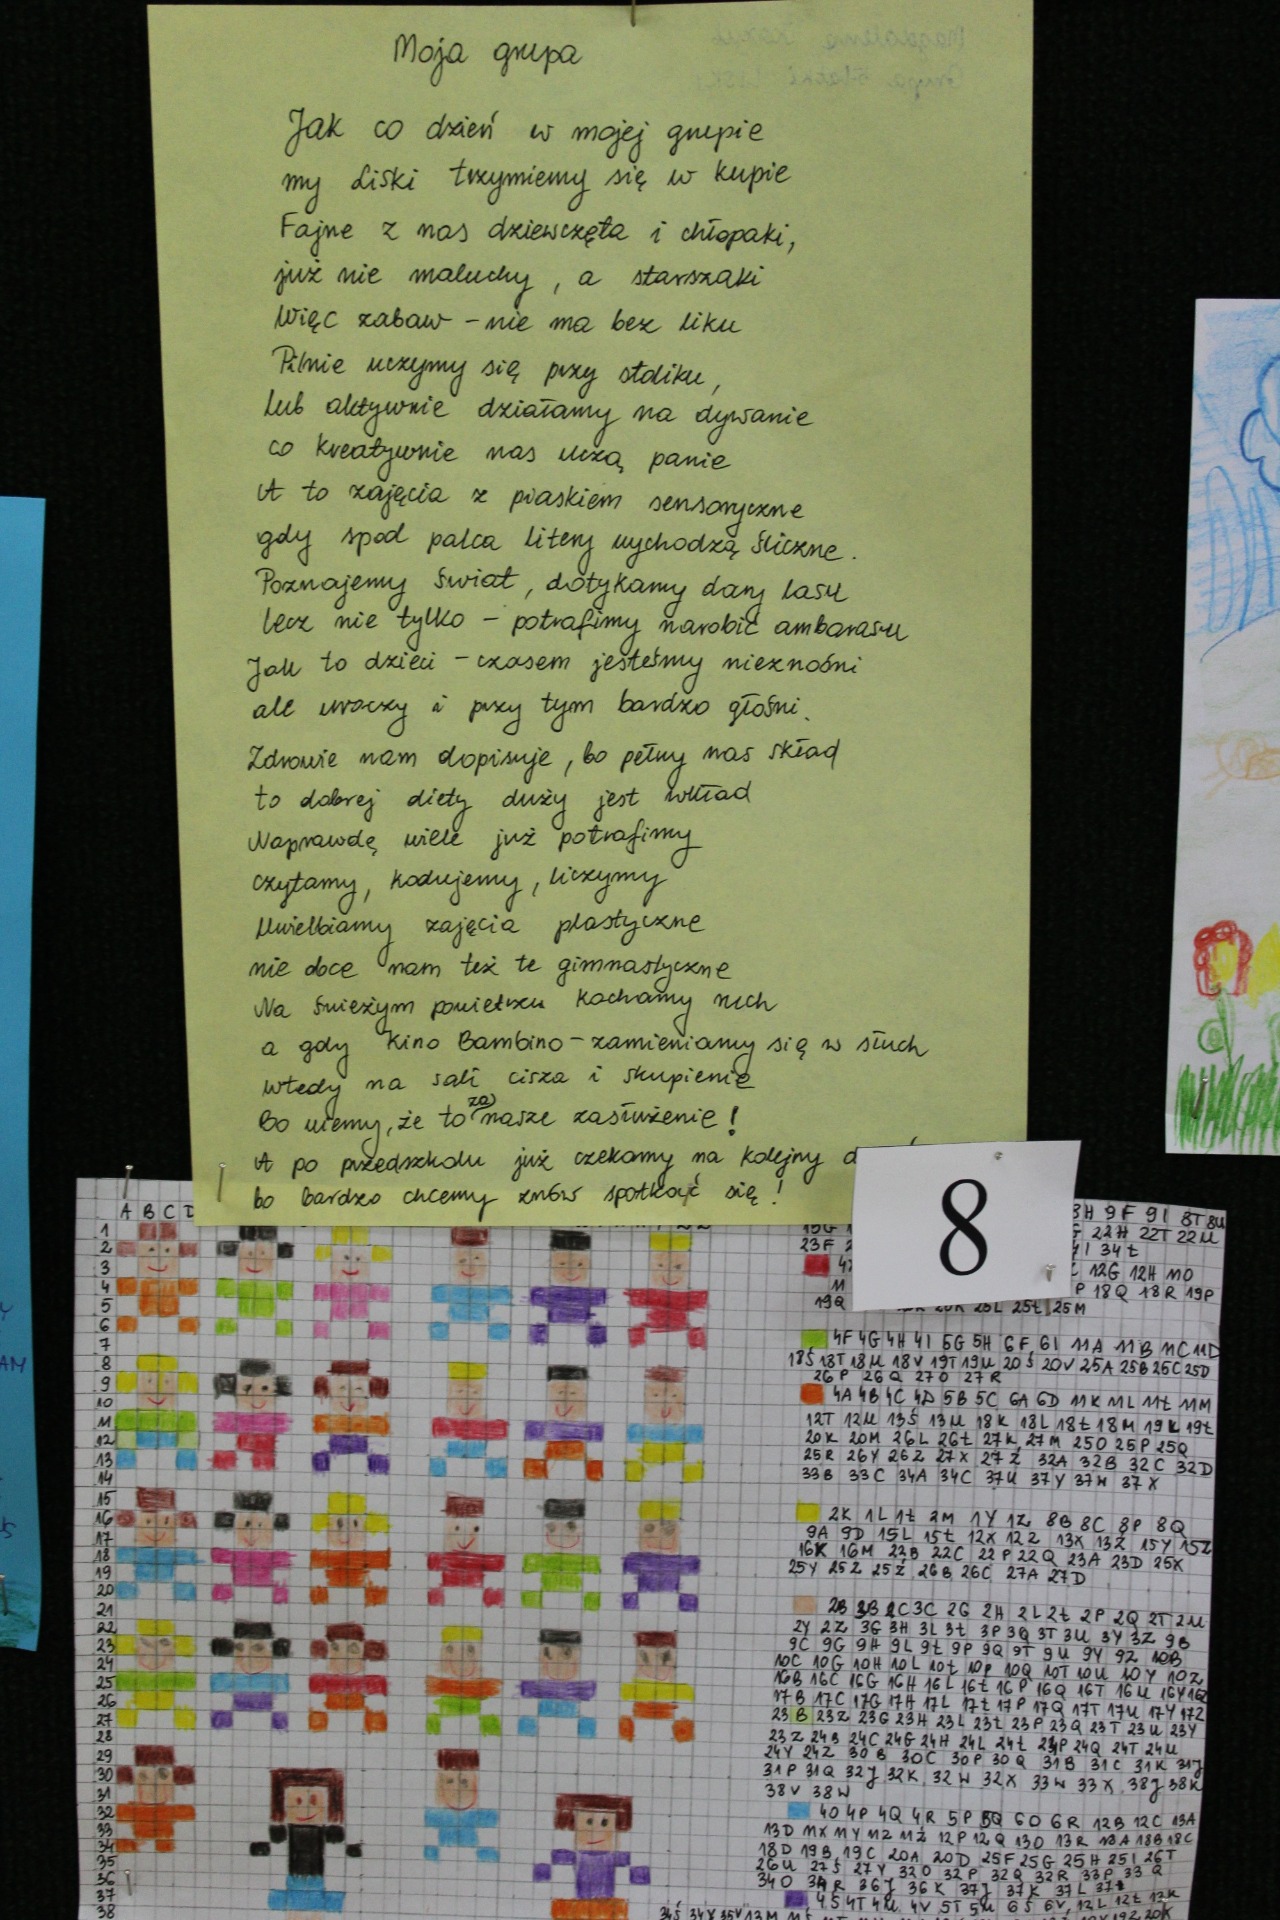 Moja grupa
Jak co dzień w mojej grupie
my Liski trzymiemy się w kupie
Fajne z nas dziewczęta i chłopaki,
już nie maluchy, a starszaki
Więc zabaw - nie ma bez liku
Pilnie uczymy się przy stoliku,
lub aktywnie działamy na dywanie
co kreatywnie nas uczą panie
A to zajęcia z piaskiem sensoryczne
gdy spod palca litery wychodzą śliczne.
Poznajemy świat, dotykamy dary lasu
lecz nie tylko - potrafimy narobić ambarasu
Jak to dzieci - czasem jesteśmy nieznośni
ale uroczy i przy tym bardzo głośni.
Zdrowie nam dopisuje, bo pełny nas skład
to dobrej diety duży jest wkład
Naprawdę wiele już potrafimy
czytamy, kodujemy, liczymy
Uwielbiamy zajęcia plastyczne
nie obce nam też te gimnastyczne
Na świeżym powietrzu kochamy ruch
a gdy Kino Bambino - zamieniamy się w słuch
wtedy na sali cisza i skupienie
Bo wiemy, że to za nasze zasłużenie!
A po przedszkolu już czekamy na kolejny
bo bardzo chcemy znów spotkać się!
8
A B C D
1
2
3
4
5
6
7
8
9
10
11
12
13
14
15
16
17
18
19
20
21
22
23
24
25
26
27
28
29
30
31
32
33
34
35
36
37
38
9F 9I 8T 8U
22H 22T 22U
34Ł
12G 12H
18Q 18R 19P
25Ł 25M
4F 4G 4H 4I 5G 5H 6F 6I 11A 11B 11C 11D
18Ś 18T 18U 18V 19T 19U 20Ś 20V 25A 25B 25C 25D
26P 26Q 27O 27R
4A 4B 4C 4D 5B 5C 6A 6D 11K 11L 11Ł 11M
12T 12U 13Ś 13U 18K 18L 18Ł 18M 19K 19Ł
20K 20M 26L 26Ł 27K 27M 25O 25P 25Q
25R 26Y 26Z 27X 27Ź 32A 32B 32C 32D
33B 33C 34A 34C 37U 37Y 37W 37X
2K 1L 1Ł 2M 1Y 1Z 8B 8C 8P 8Q
9A 9D 15L 15Ł 12X 12Z 13X 13Ź 15Y 15Z
16K 16M 22B 22C 22P 22Q 23A 23D 25X
25Y 25Z 25Ź 26B 26C 27A 27D
2C 3C 2G 2H 2L 2Ł 2P 2Q 2T 2U
2Y 2Z 3G 3H 3L 3Ł 3P 3Q 3T 3U 3Y 3Z 9B
9C 9G 9H 9L 9Ł 9P 9Q 9T 9U 9Y 9Z 10B
10C 10G 10H 10L 10Ł 10P 10Q 10T 10U 10Y 10Z
16B 16C 16G 16H 16L 16Ł 16P 16Q 16T 16U 16Y
17B 17C 17G 17H 17L 17Ł 17P 17Q 17T 17U 17Y 17Z
23B 23Z 23G 23H 23L 23Ł 23P 23Q 23T 23U 23Y
23Z 24B 24C 24G 24H 24L 24Ł 24P 24Q 24T 24U
24Y 24Z 30B 30C 30P 30Q 31B 31C 31K 31J
31P 31Q 32J 32K 32W 32X 33W 33X 38J 38K
38V 38W
4O 4P 4Q 4R 5P 5Q 6O 6R 12B 12C 13A
13D 11X 11Y 11Z 11Ź 12P 12Q 13O 13R 18A 18B 18C
18D 19B 19C 20A 20D 25F 25G 25H 25I 26T
26U 27Ś 27Y 32O 32P 32Q 32R 33P 33Q
34O 34R 36J 36K 37J 37K 37L
4Ś 4T 4U 4V 5T 5U 6Ś 6V 12L 12Ł 12K